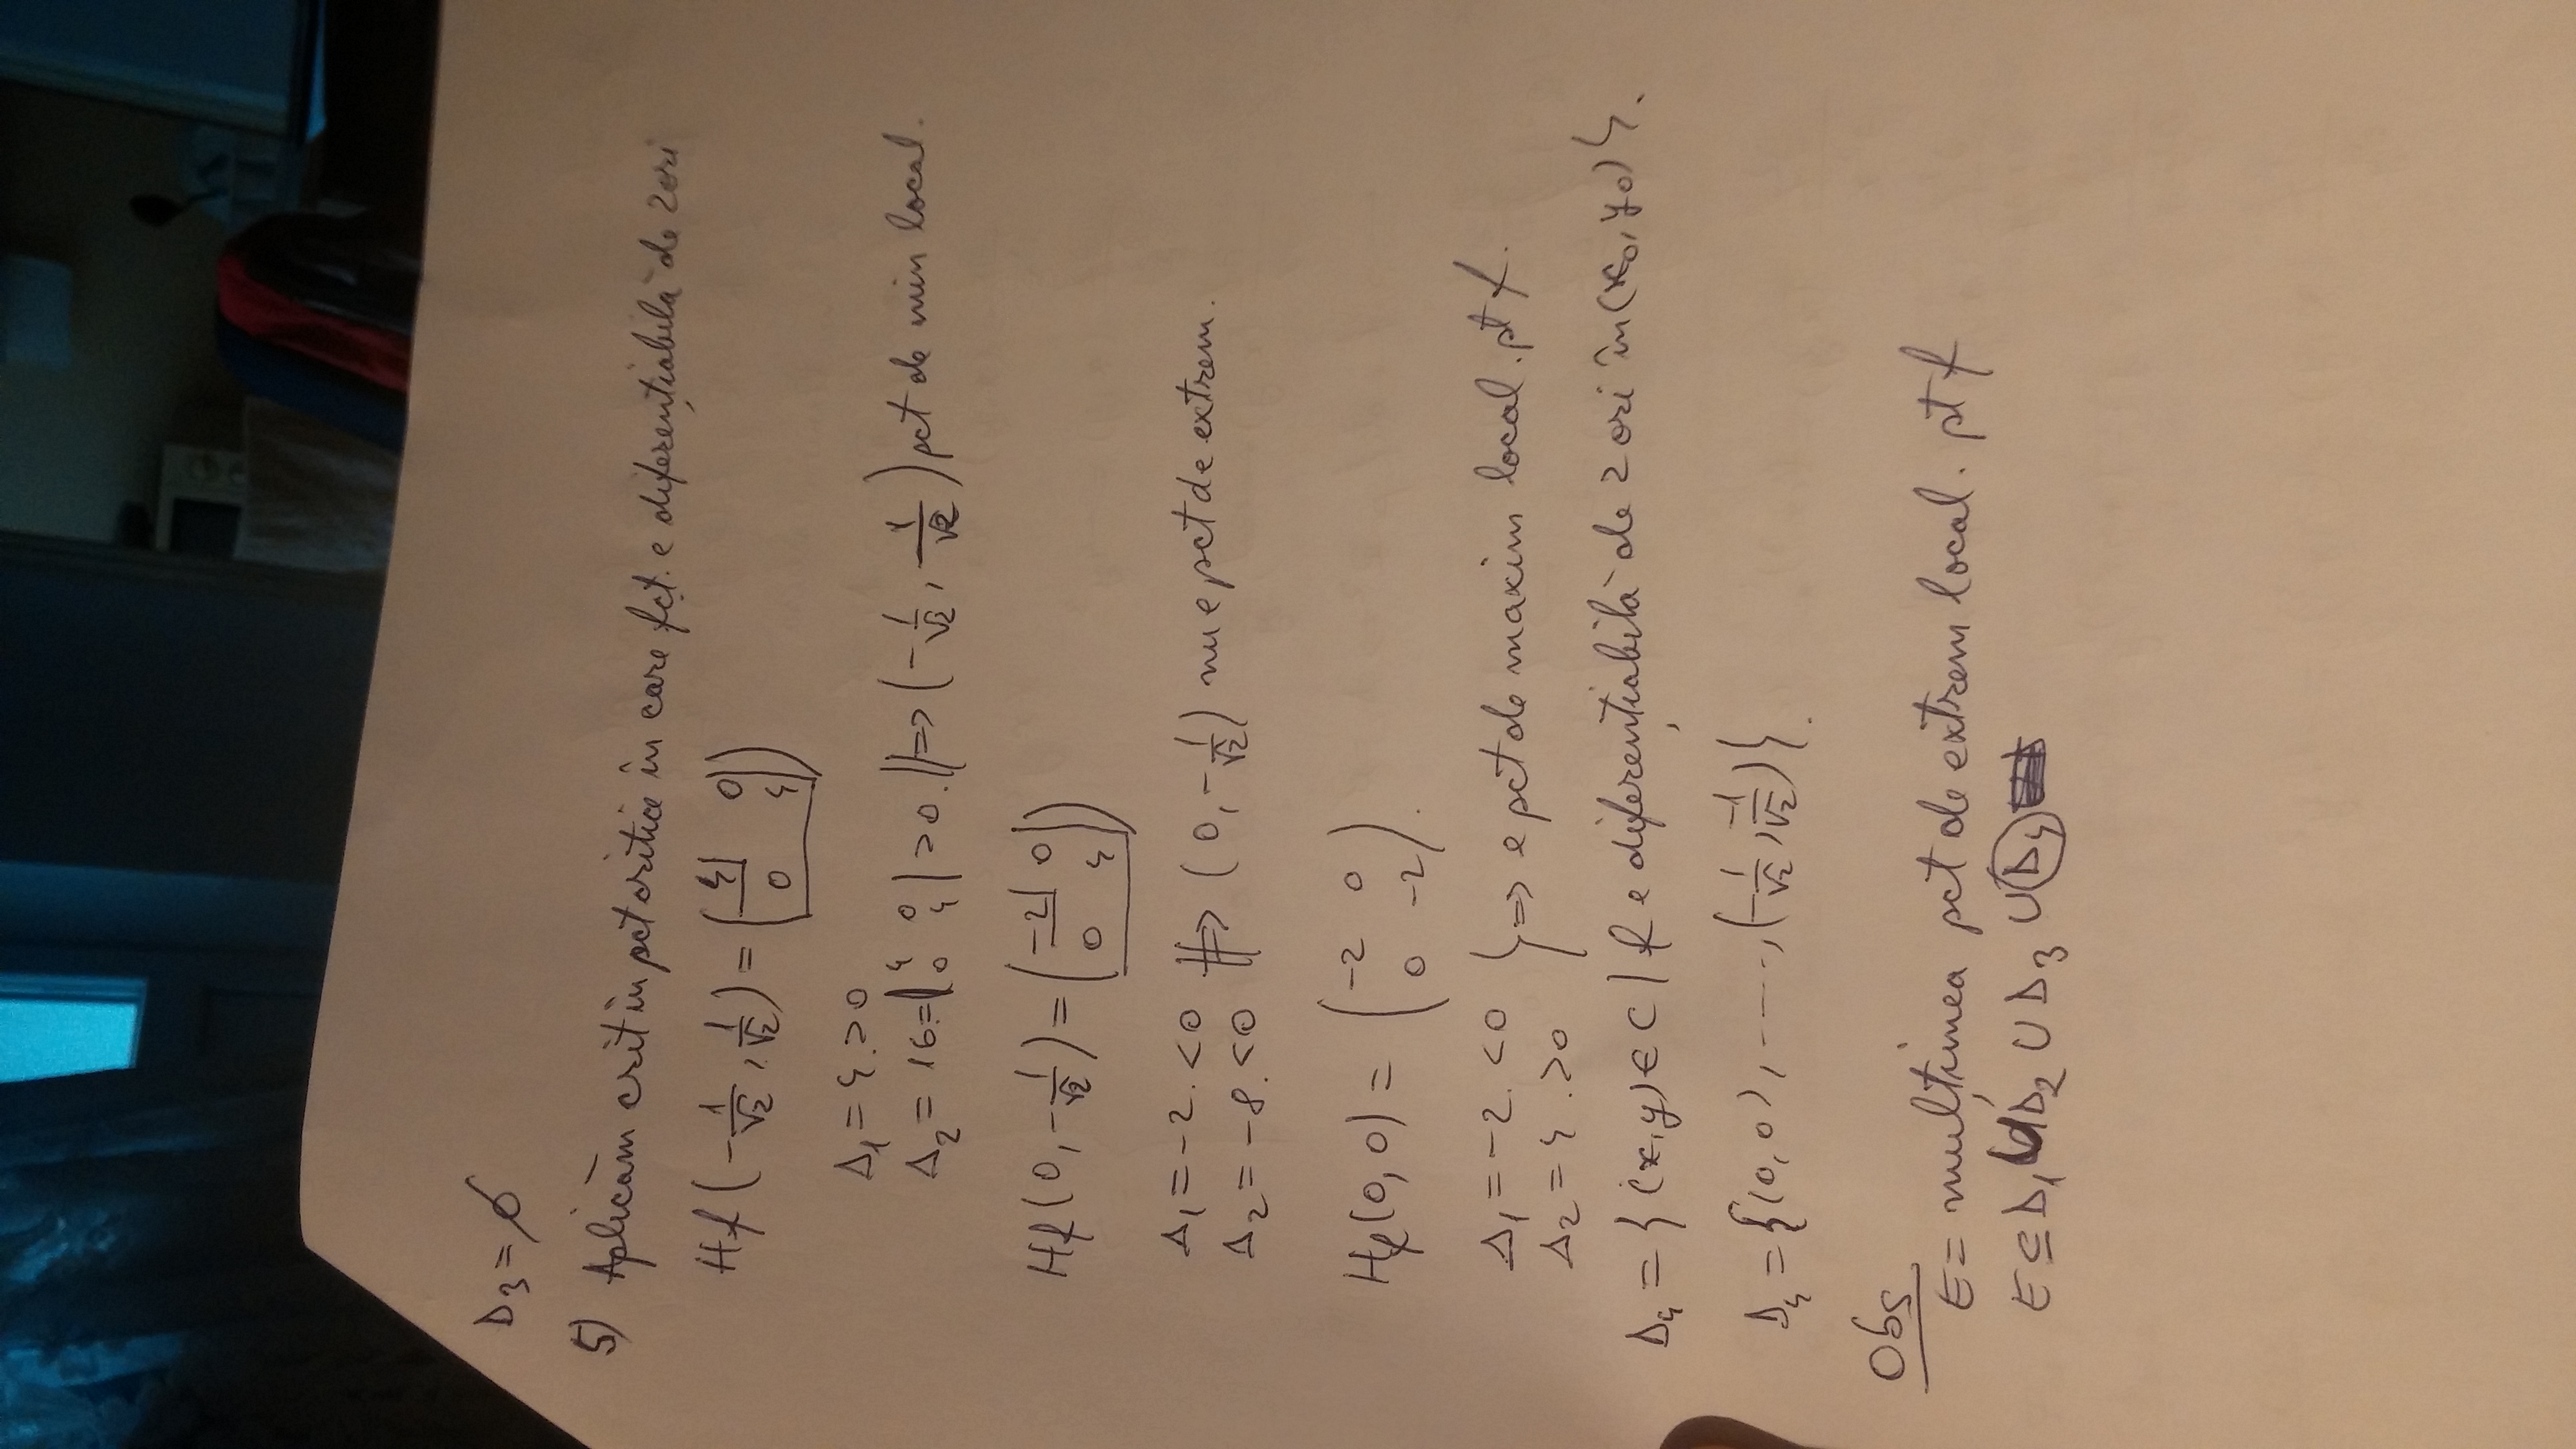 D₃ = ∅
5) Aplicăm crit în pct critice în care fct. e diferențiabilă de 2 ori
Hf(-1/√2, 1/√2) = (4 0 / 0 4)
Δ₁ = 4 > 0
Δ₂ = 16 = |4 0 / 0 4| > 0. ||⇒ (-1/√2, 1/√2) pct de min local.
Hf(0, -1/√2) = (-2 0 / 0 4)
Δ₁ = -2 < 0
Δ₂ = -8 < 0 ||⇒ (0, -1/√2) nu e pct de extrem.
Hf(0,0) = (-2 0 / 0 -2).
Δ₁ = -2 < 0
Δ₂ = 4 > 0 } ⇒ e pct de maxim local. pt f.
D₄ = {(x,y) ∈ C | f e diferențiabilă de 2 ori în (x₀, y₀)}.
D₄ = {(0,0), ----, (-1/√2, -1/√2)}.
Obs
E = mulțimea pct de extrem local. pt f
E ⊆ D₁ ∪ D₂ ∪ D₃ ∪ D₄